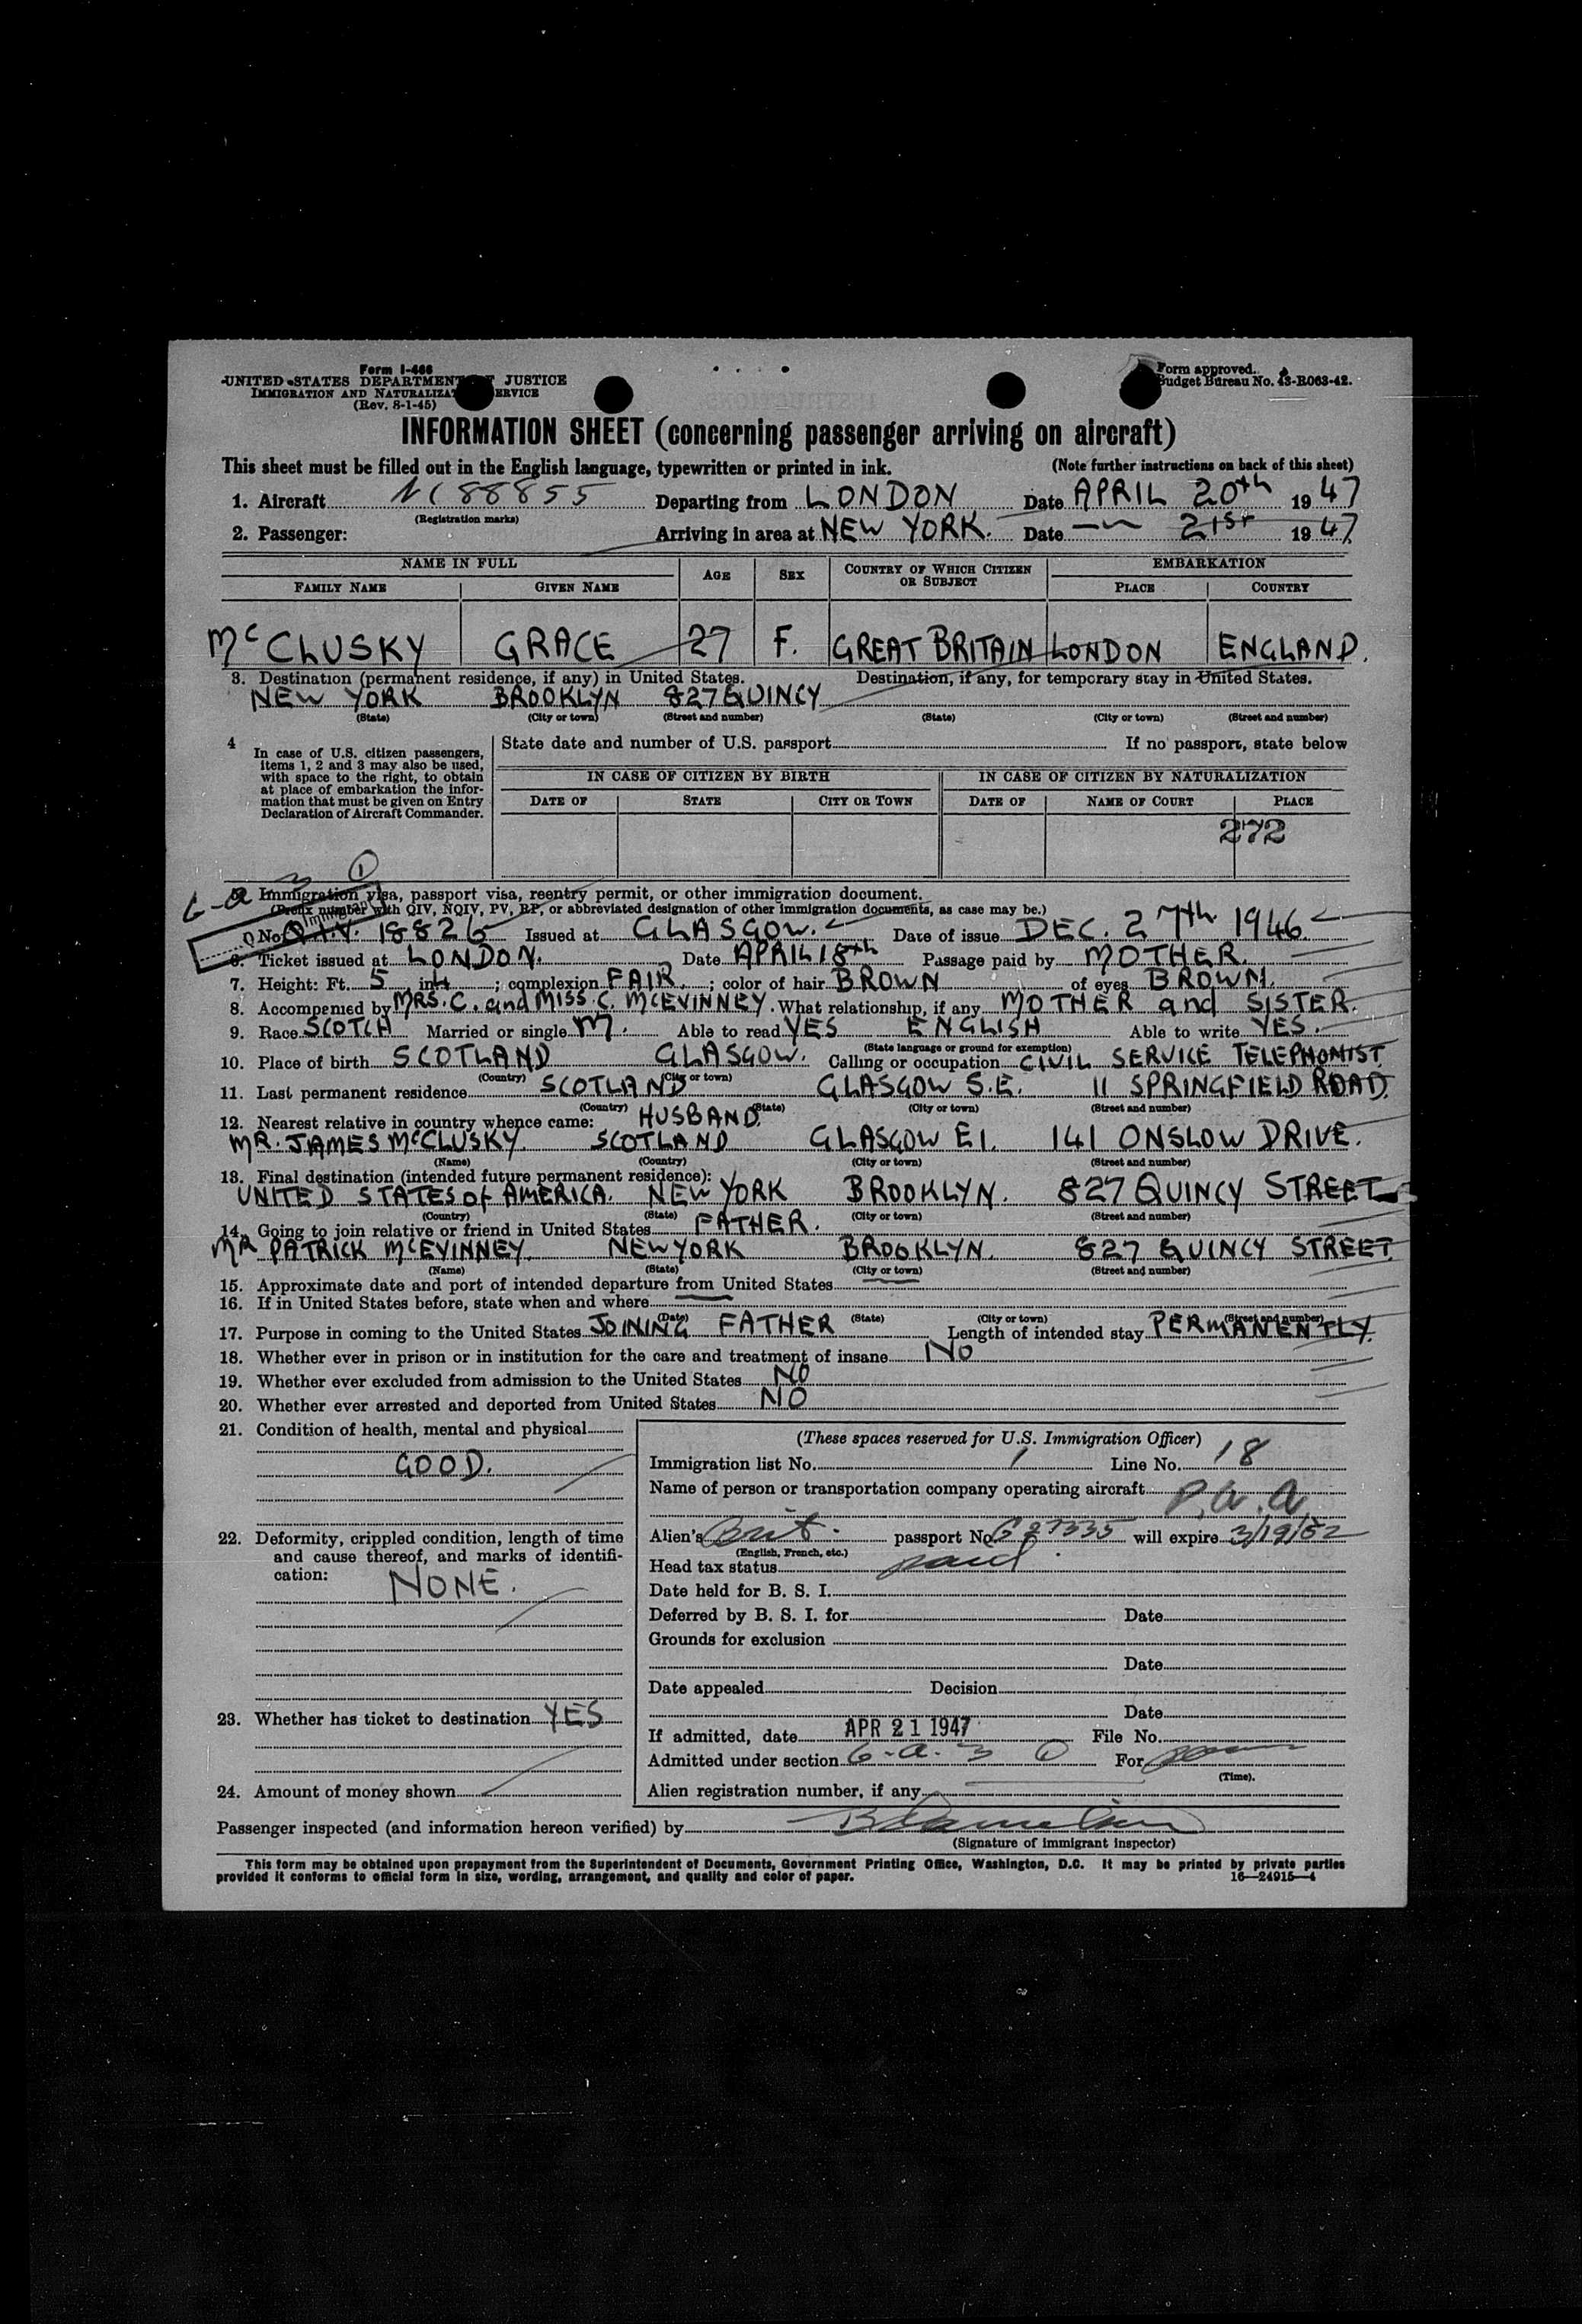 Form I-466
UNITED STATES DEPARTMENT OF JUSTICE
IMMIGRATION AND NATURALIZATION SERVICE
(Rev. 8-1-45)
Form approved.
Budget Bureau No. 43-R063-42.
INFORMATION SHEET (concerning passenger arriving on aircraft)
This sheet must be filled out in the English language, typewritten or printed in ink. (Note further instructions on back of this sheet)
1. Aircraft NC88855 Departing from LONDON Date APRIL 20th 1947
(Registration marks)
2. Passenger: Arriving in area at NEW YORK. Date —〃— 21st 1947
NAME IN FULL AGE SEX COUNTRY OF WHICH CITIZEN OR SUBJECT EMBARKATION
FAMILY NAME GIVEN NAME PLACE COUNTRY
McCLUSKY GRACE 27 F. GREAT BRITAIN LONDON ENGLAND.
3. Destination (permanent residence, if any) in United States. Destination, if any, for temporary stay in United States.
NEW YORK BROOKLYN 827 QUINCY
(State) (City or town) (Street and number) (State) (City or town) (Street and number)
4 In case of U.S. citizen passengers, items 1, 2 and 3 may also be used, with space to the right, to obtain at place of embarkation the information that must be given on Entry Declaration of Aircraft Commander.
State date and number of U.S. passport If no passport, state below
IN CASE OF CITIZEN BY BIRTH IN CASE OF CITIZEN BY NATURALIZATION
DATE OF STATE CITY OR TOWN DATE OF NAME OF COURT PLACE
272
6-a 3 1
5. Immigration visa, passport visa, reentry permit, or other immigration document.
(Prefix number with QIV, NQIV, PV, RP, or abbreviated designation of other immigration documents, as case may be.)
No. Q.I.V. 18826 Issued at GLASGOW. Date of issue DEC. 27th 1946.
6. Ticket issued at LONDON. Date APRIL 18th Passage paid by MOTHER.
7. Height: Ft. 5 in. 4 ; complexion FAIR. ; color of hair BROWN of eyes BROWN.
8. Accompanied by MRS. C. and MISS. C. McEVINNEY. What relationship, if any MOTHER and SISTER.
9. Race SCOTCH Married or single M. Able to read YES ENGLISH Able to write YES.
(State language or ground for exemption)
10. Place of birth SCOTLAND GLASGOW. Calling or occupation CIVIL SERVICE TELEPHONIST.
(Country) (City or town)
11. Last permanent residence SCOTLAND GLASGOW S.E. 11 SPRINGFIELD ROAD.
(Country) (State) (City or town) (Street and number)
12. Nearest relative in country whence came: HUSBAND.
MR. JAMES McCLUSKY. SCOTLAND GLASGOW E1. 141 ONSLOW DRIVE.
(Name) (Country) (City or town) (Street and number)
13. Final destination (intended future permanent residence):
UNITED STATES of AMERICA. NEW YORK BROOKLYN. 827 QUINCY STREET
(Country) (State) (City or town) (Street and number)
14. Going to join relative or friend in United States FATHER.
MR PATRICK McEVINNEY. NEW YORK BROOKLYN. 827 QUINCY STREET
(Name) (State) (City or town) (Street and number)
15. Approximate date and port of intended departure from United States
16. If in United States before, state when and where
(Date) (State) (City or town) (Street and number)
17. Purpose in coming to the United States JOINING FATHER Length of intended stay PERMANENTLY.
18. Whether ever in prison or in institution for the care and treatment of insane NO
19. Whether ever excluded from admission to the United States NO
20. Whether ever arrested and deported from United States NO
21. Condition of health, mental and physical
GOOD.
22. Deformity, crippled condition, length of time and cause thereof, and marks of identification:
NONE.
23. Whether has ticket to destination YES
24. Amount of money shown
(These spaces reserved for U.S. Immigration Officer)
Immigration list No. 1 Line No. 18
Name of person or transportation company operating aircraft P.A.A
Alien's Brit. passport No. C 27335 will expire 3/19/52
(English, French, etc.)
Head tax status paid
Date held for B. S. I.
Deferred by B. S. I. for Date
Grounds for exclusion
Date
Date appealed Decision
Date
If admitted, date APR 21 1947 File No.
Admitted under section 6-a-3 1 For perm
(Time).
Alien registration number, if any
Passenger inspected (and information hereon verified) by
(Signature of immigrant inspector)
This form may be obtained upon prepayment from the Superintendent of Documents, Government Printing Office, Washington, D.C. It may be printed by private parties
provided it conforms to official form in size, wording, arrangement, and quality and color of paper. 16—24915-4